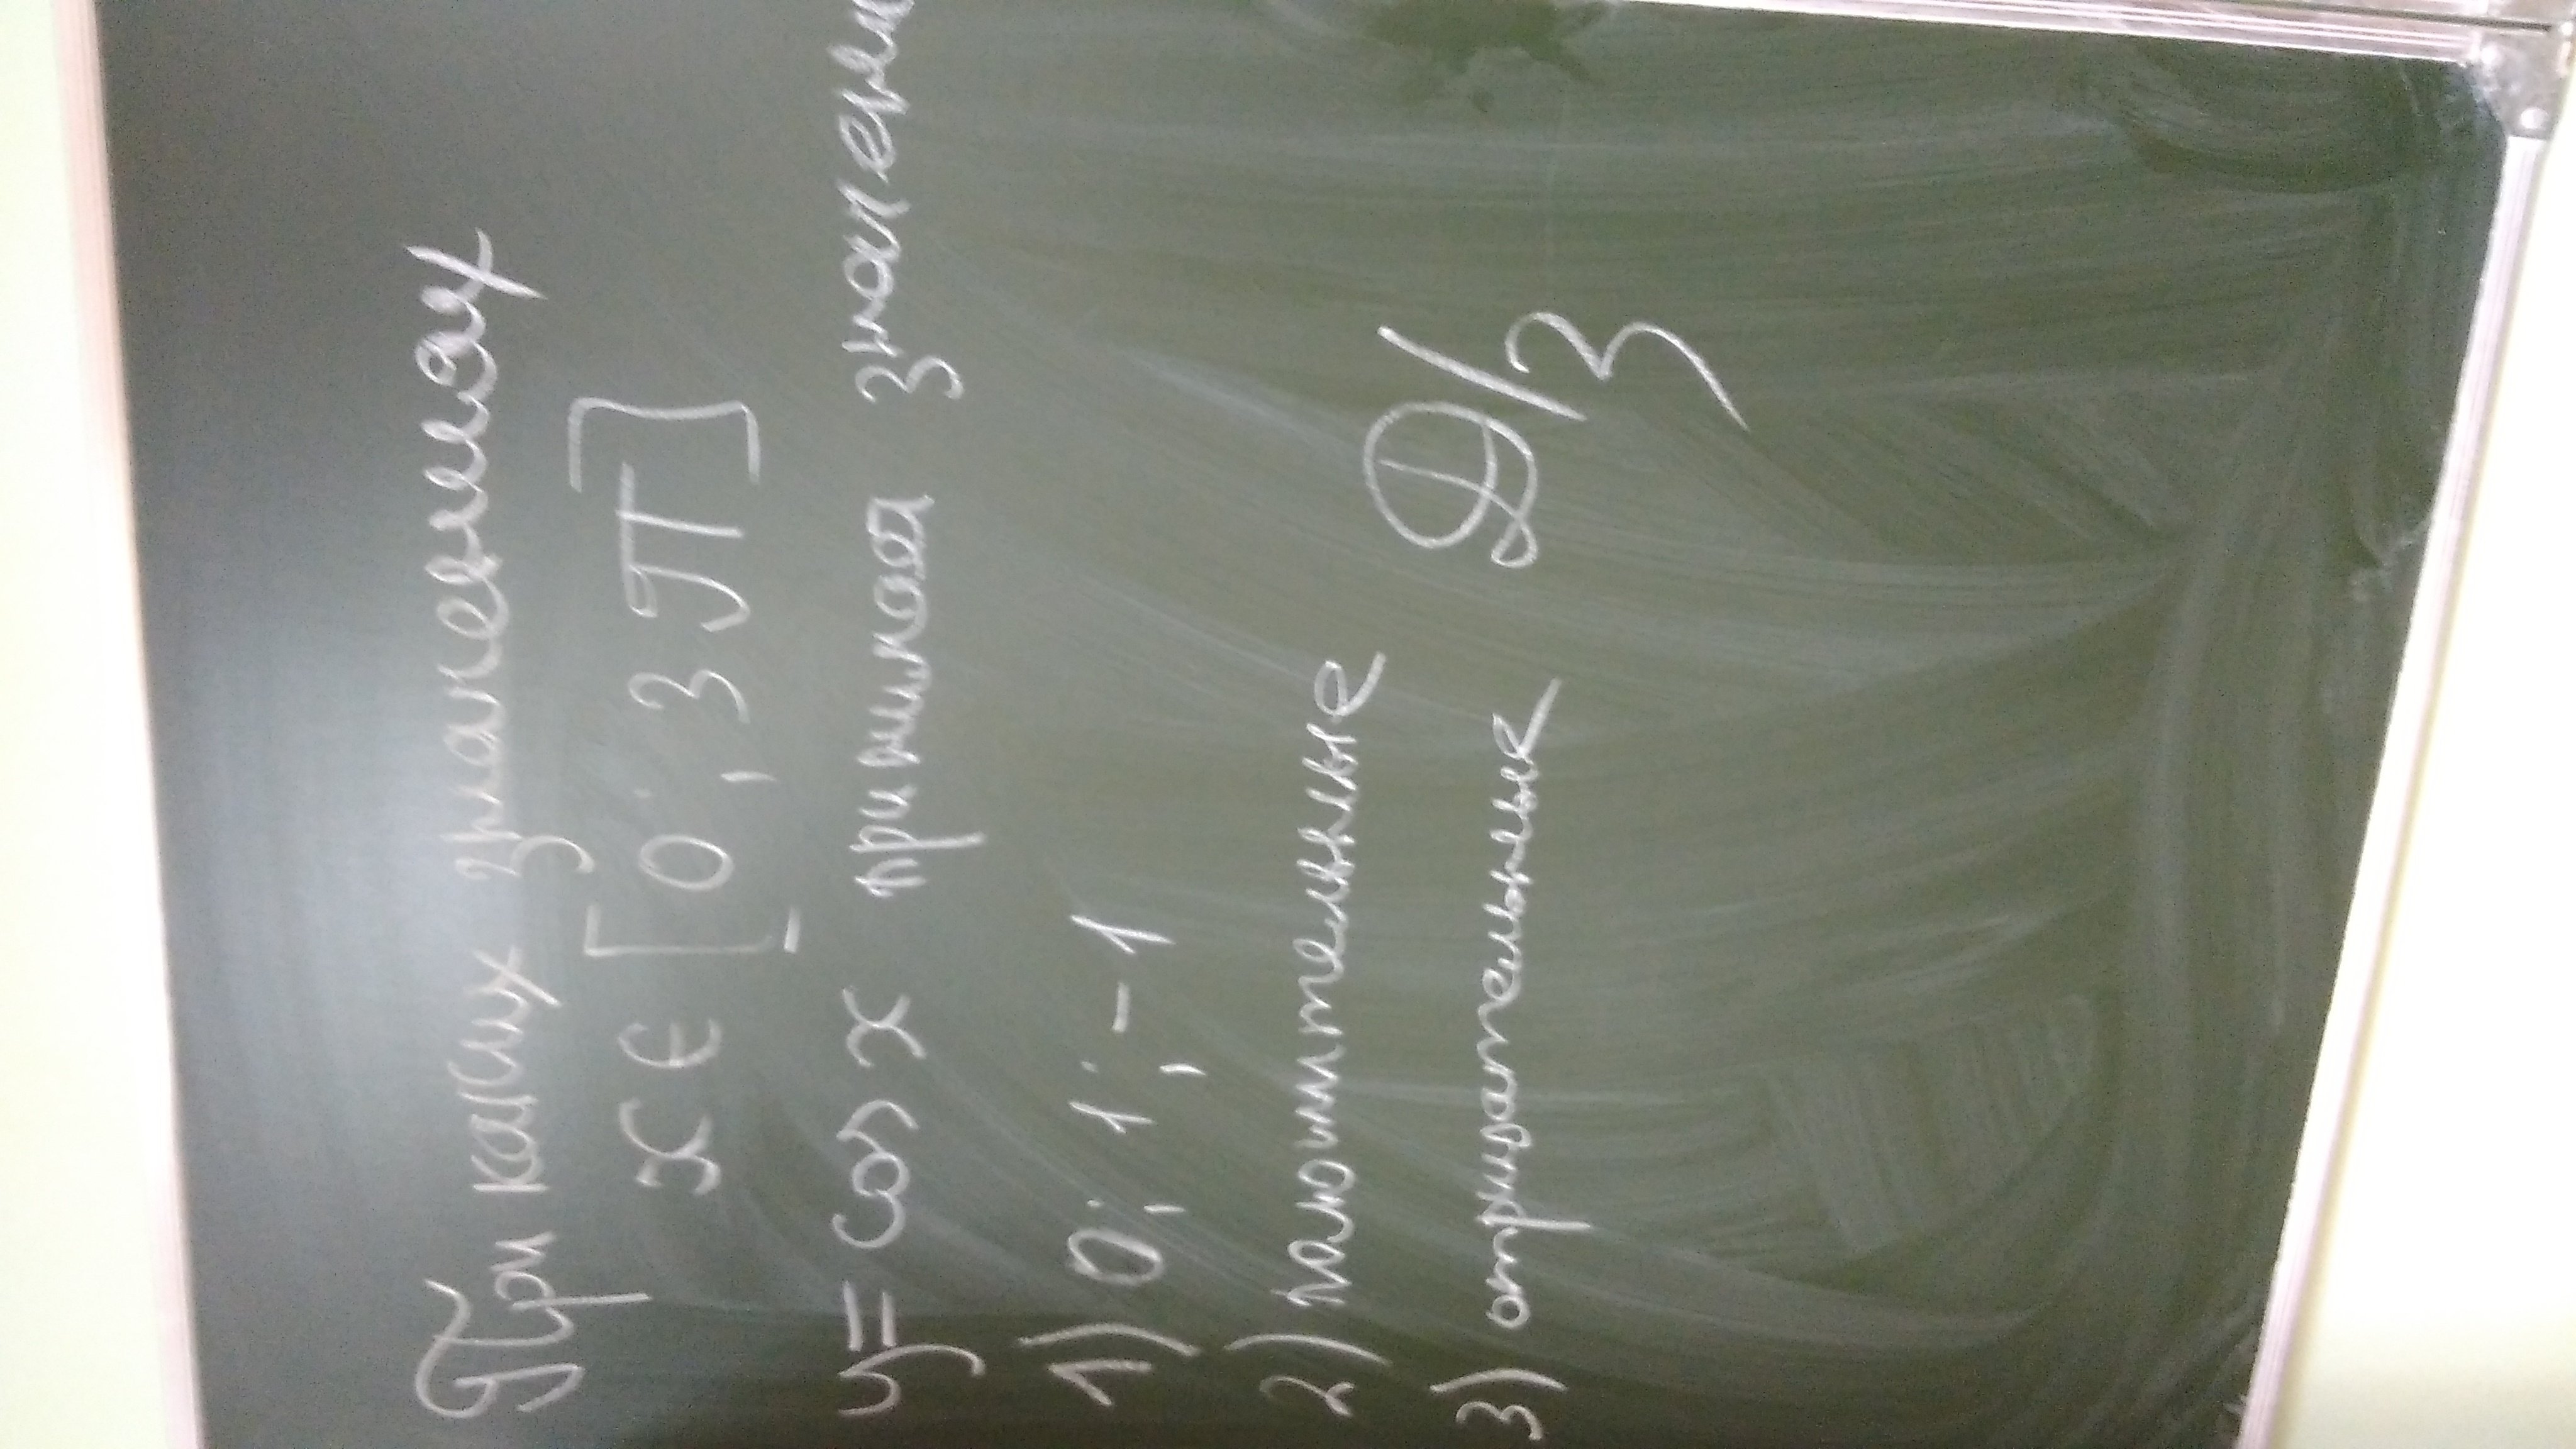 При каких значениях
x ∈ [0; 3π]
y = cos x принимает значени
1) 0; 1; -1
2) положительные
3) отрицательные
Д/З